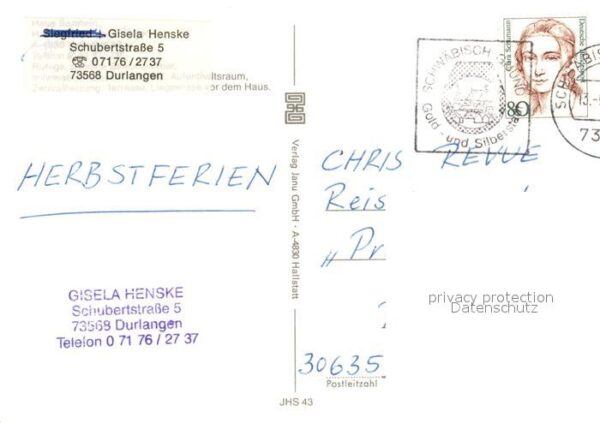 Siegfried + Gisela Henske
Schubertstraße 5
☏ 07176/2737
73568 Durlangen
ltsraum,
vor dem Haus.
HERBSTFERIEN
GISELA HENSKE
Schubertstraße 5
73568 Durlangen
Telefon 0 71 76 / 27 37
Verlag Janu GmbH · A-4830 Hallstatt
JHS 43
SCHWÄBISCH GMÜND
Gold - und Silberstadt
Clara Schumann
Deutsche Bundespost
80
SCHWÄBISCH
13.
73
CHRIS REVUE
Reis
„Pr
30635
Postleitzahl
privacy protection
Datenschutz